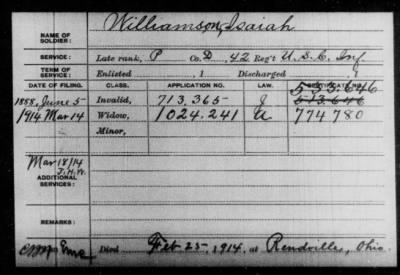 NAME OF SOLDIER: Williamson, Isaiah
SERVICE: Late rank, P Co. D, 42 Reg't U.S.C. Inf.
TERM OF SERVICE: Enlisted , 1 Discharged , 1
DATE OF FILING. CLASS. APPLICATION NO. LAW. CERTIFICATE NO.
533.646
1888, June 5 Invalid, 713.365 J 513.646
1914 Mar 14 Widow, 1024.241 A 774780
Minor,
Mar 18/14
J.H.W.
ADDITIONAL SERVICES:
REMARKS:
Died Feb 25, 1914, at Rendville, Ohio.